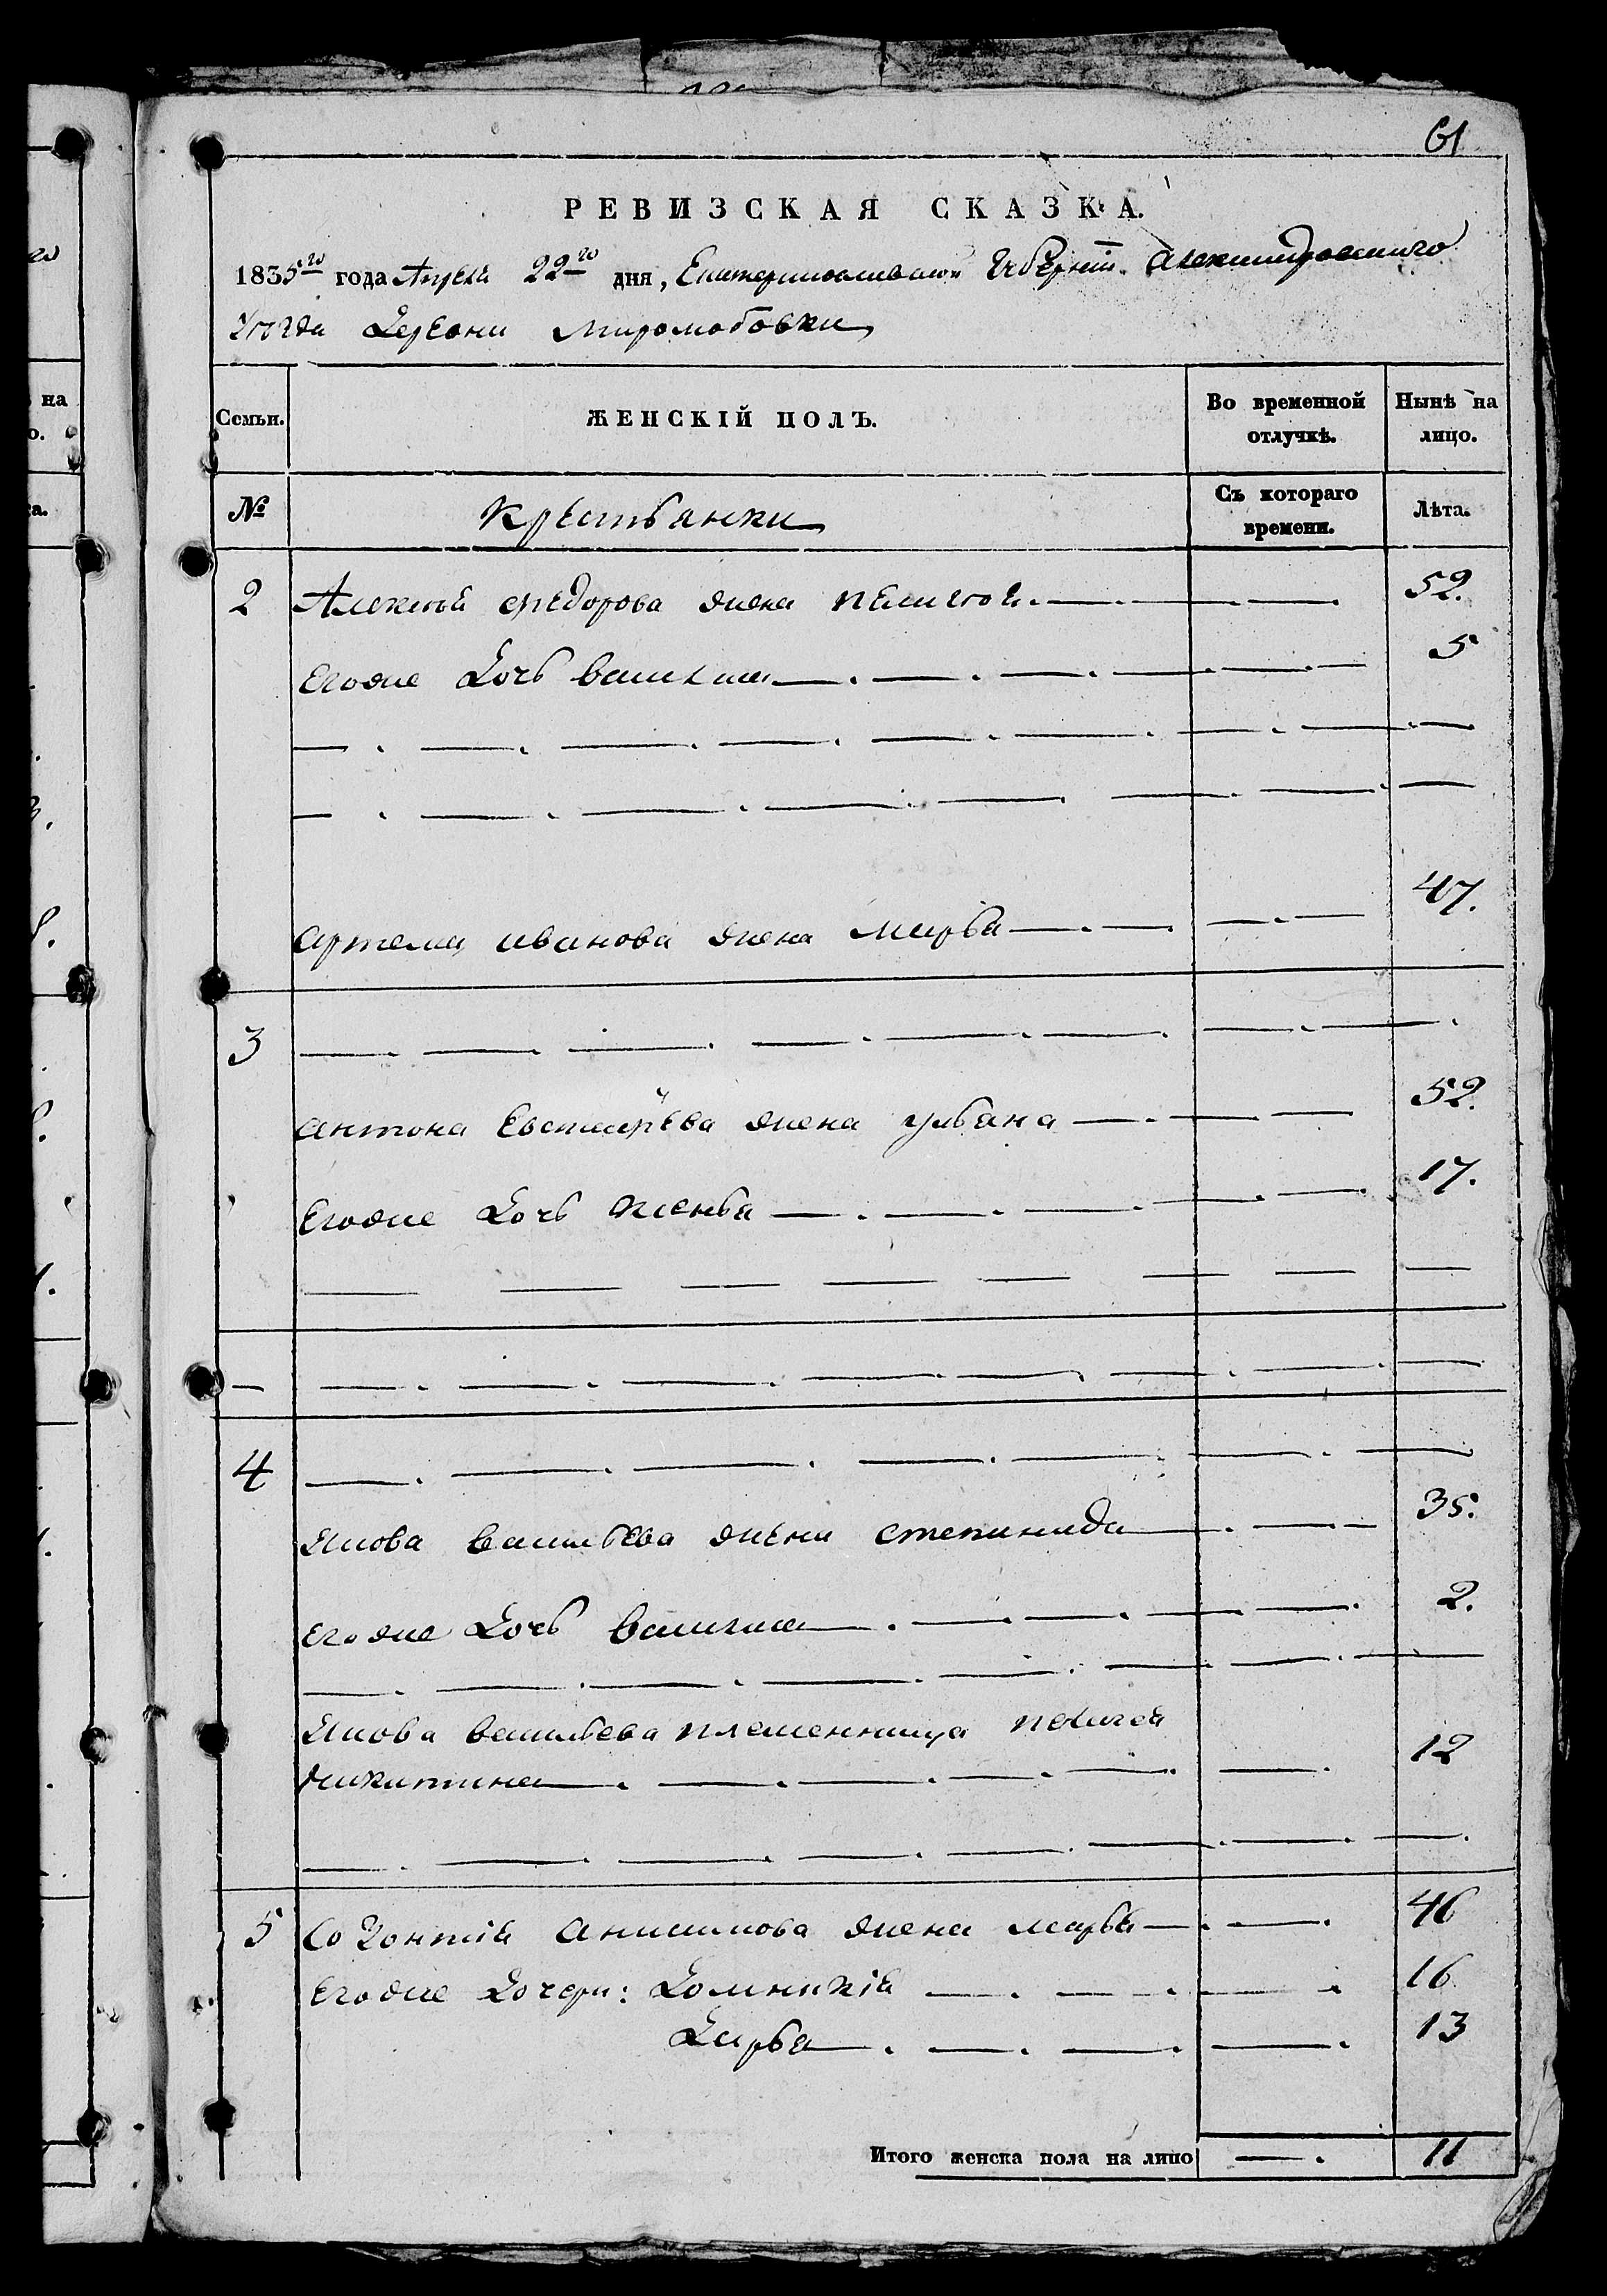 61
РЕВИЗСКАЯ СКАЗКА.
1835го года Апреля 22го дня, Екатеринославской Губернiи Александровскаго
Уезда Деревни Миролюбовки
Семьи.
ЖЕНСКIЙ ПОЛЪ.
Во временной отлучкѣ.
Нынѣ на лицо.
№
Крестьянки
Съ котораго времени.
Лѣта.
2 Алексея Федорова жена Пелагея 52.
Егоже дочь Василиса 5
Артема Иванова жена Марья 47.
3
Антона жена Ульана 52.
Егоже дочь Ксенья 17.
4
Якова Васильева жена Степанида 35.
Егоже дочь Василиса 2.
Якова Васильева племенница Пелагея
Никитина 12
5 Созонтiя Анисимова жена Марья 46
Егоже дочери: Домникiя 16
Дарья 13
Итого женска пола на лицо 11